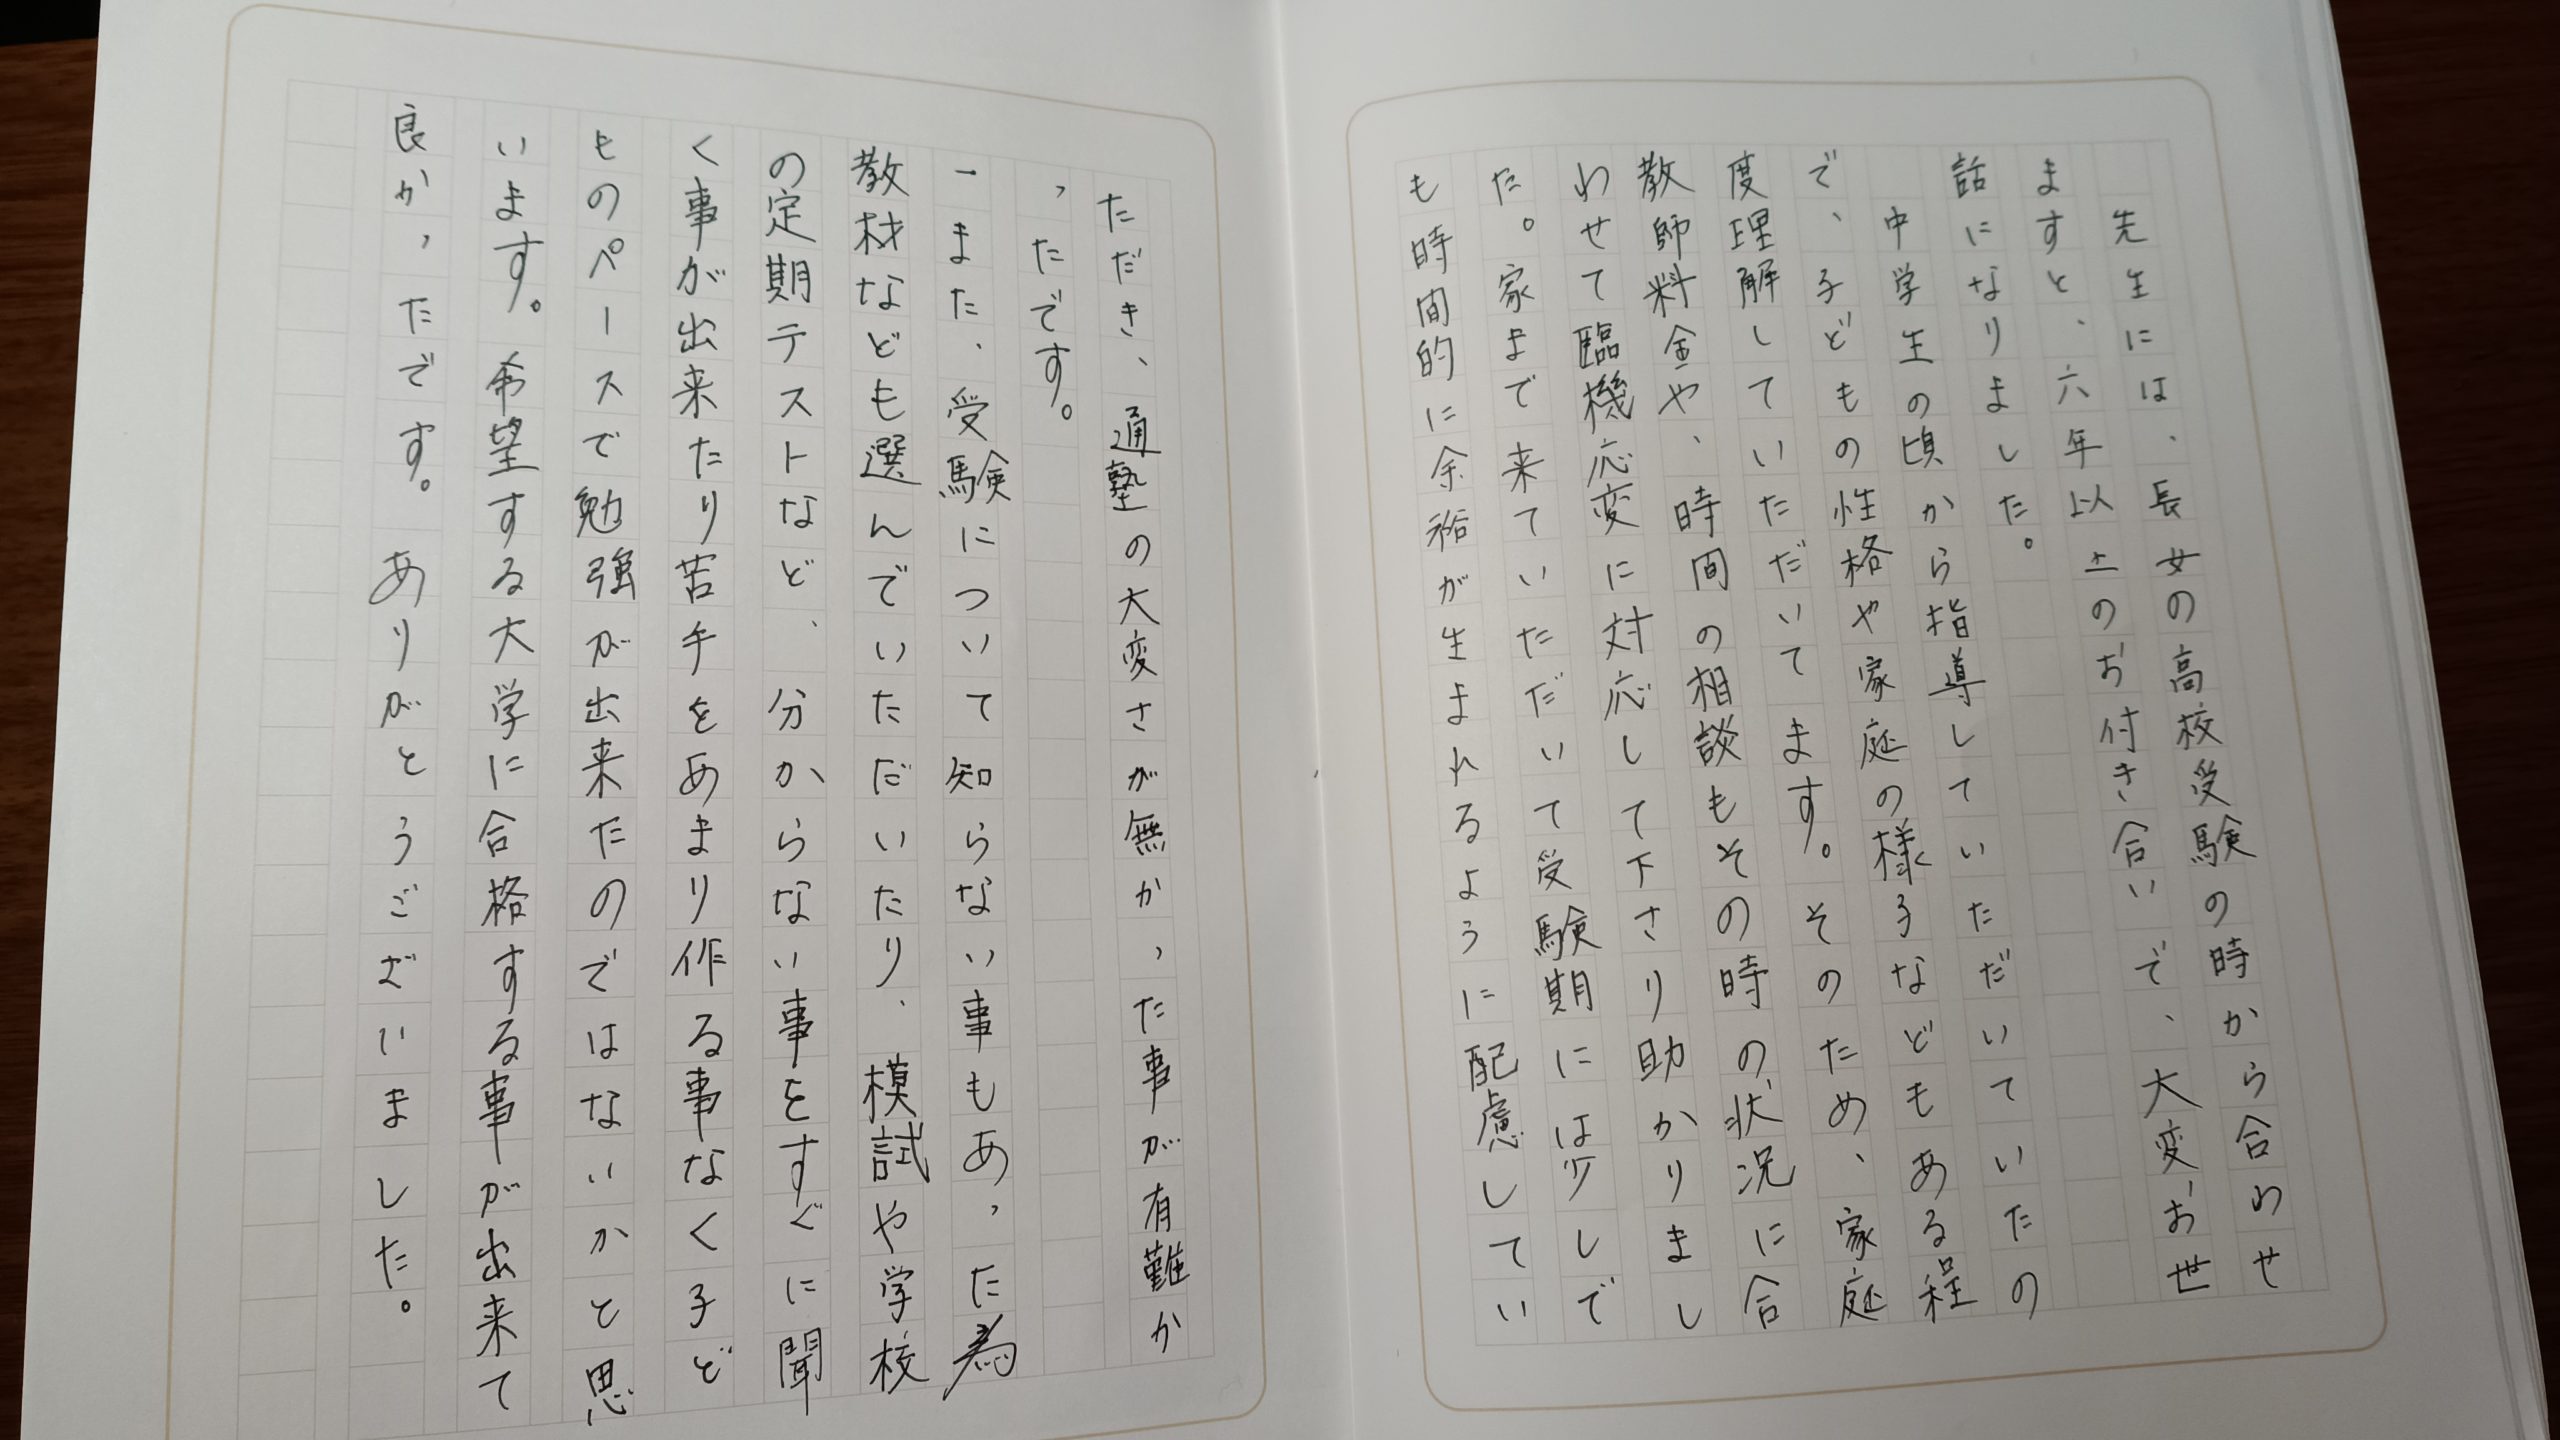 先生には、長女の高校受験の時から合わせ
ますと、六年以上のお付き合いで、大変お世
話になりました。
中学生の頃から指導していただいていたの
で、子どもの性格や家庭の様子などもある程
度理解していただいてます。そのため、家庭
教師料金や、時間の相談もその時の状況に合
わせて臨機応変に対応して下さり助かりまし
た。家まで来ていただいて受験期には少しで
も時間的に余裕が生まれるように配慮してい
ただき、通塾の大変さが無かった事が有難か
ったです。
また、受験について知らない事もあった為
教材なども選んでいただいたり、模試や学校
の定期テストなど、分からない事をすぐに聞
く事が出来たり苦手をあまり作る事なく子ど
ものペースで勉強が出来たのではないかと思
います。希望する大学に合格する事が出来て
良かったです。ありがとうございました。